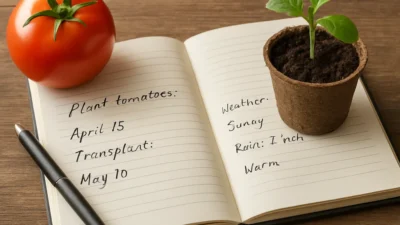 Plant tomatoes:
April 15
Transplant:
May 10
Weather.
Sunny
Rain: I 'nch
Warm